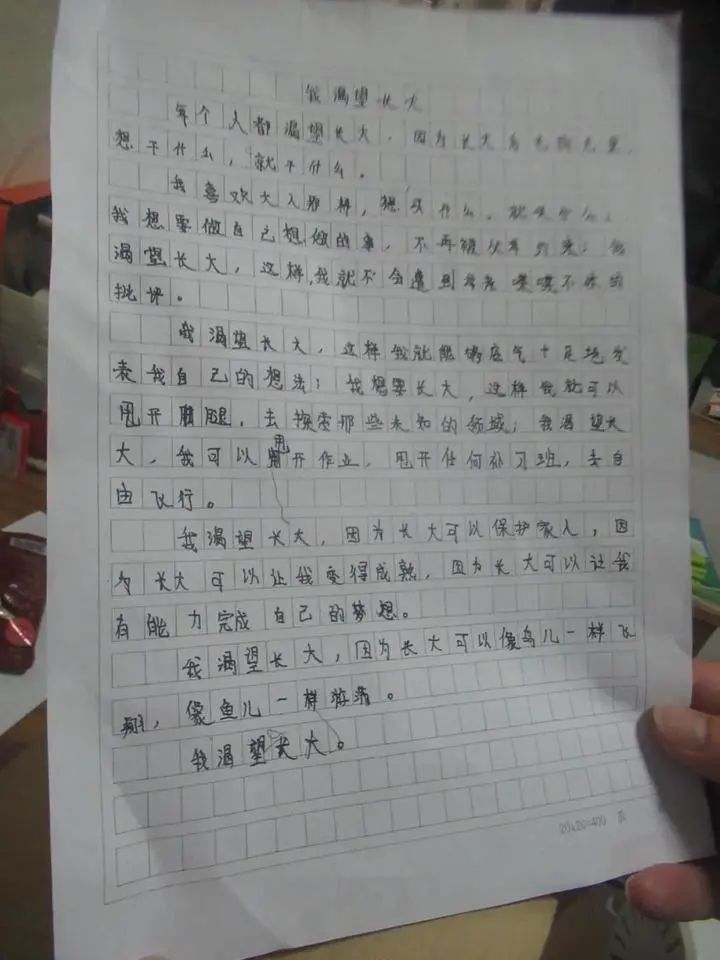 我渴望长大
每个人都渴望长大，因为长大后无拘无束，
想干什么，就干什么。
我喜欢大人那样，想买什么，就买什么；
我想要做自己想做的事，不再被父母约束；我
渴望长大，这样，我就不会遭到老师喋喋不休的
批评。
我渴望长大，这样我就能够底气十足地发
表我自己的想法；我想要长大，这样我就可以
甩开腿，去探索那些未知的领域；我渴望长
大，我可以甩开作业，甩开任何补习班，去自
由飞行。
我渴望长大，因为长大可以保护家人，因
为长大可以让我变得成熟，因为长大可以让我
有能力完成自己的梦想。
我渴望长大，因为长大可以像鸟儿一样飞
翔，像鱼儿一样游
我渴望长大。
20×20=400